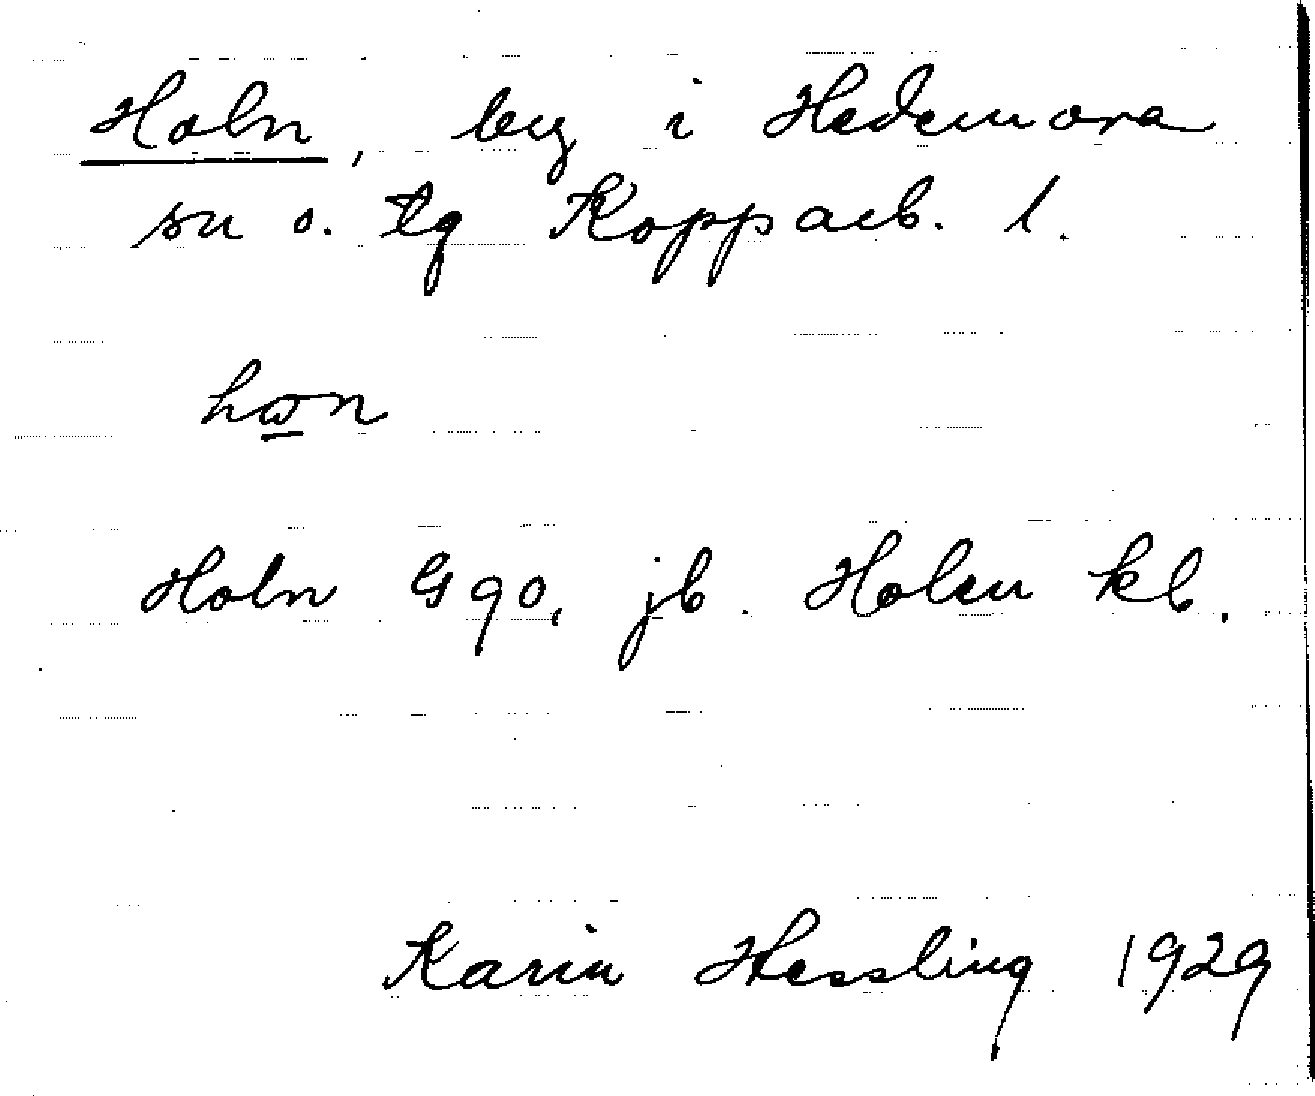 Holn, by i Hedemora
sn o. tg Kopparb. l.
hωn
Holn G 90, jb. Holen kb.
Karin Hessling 1929